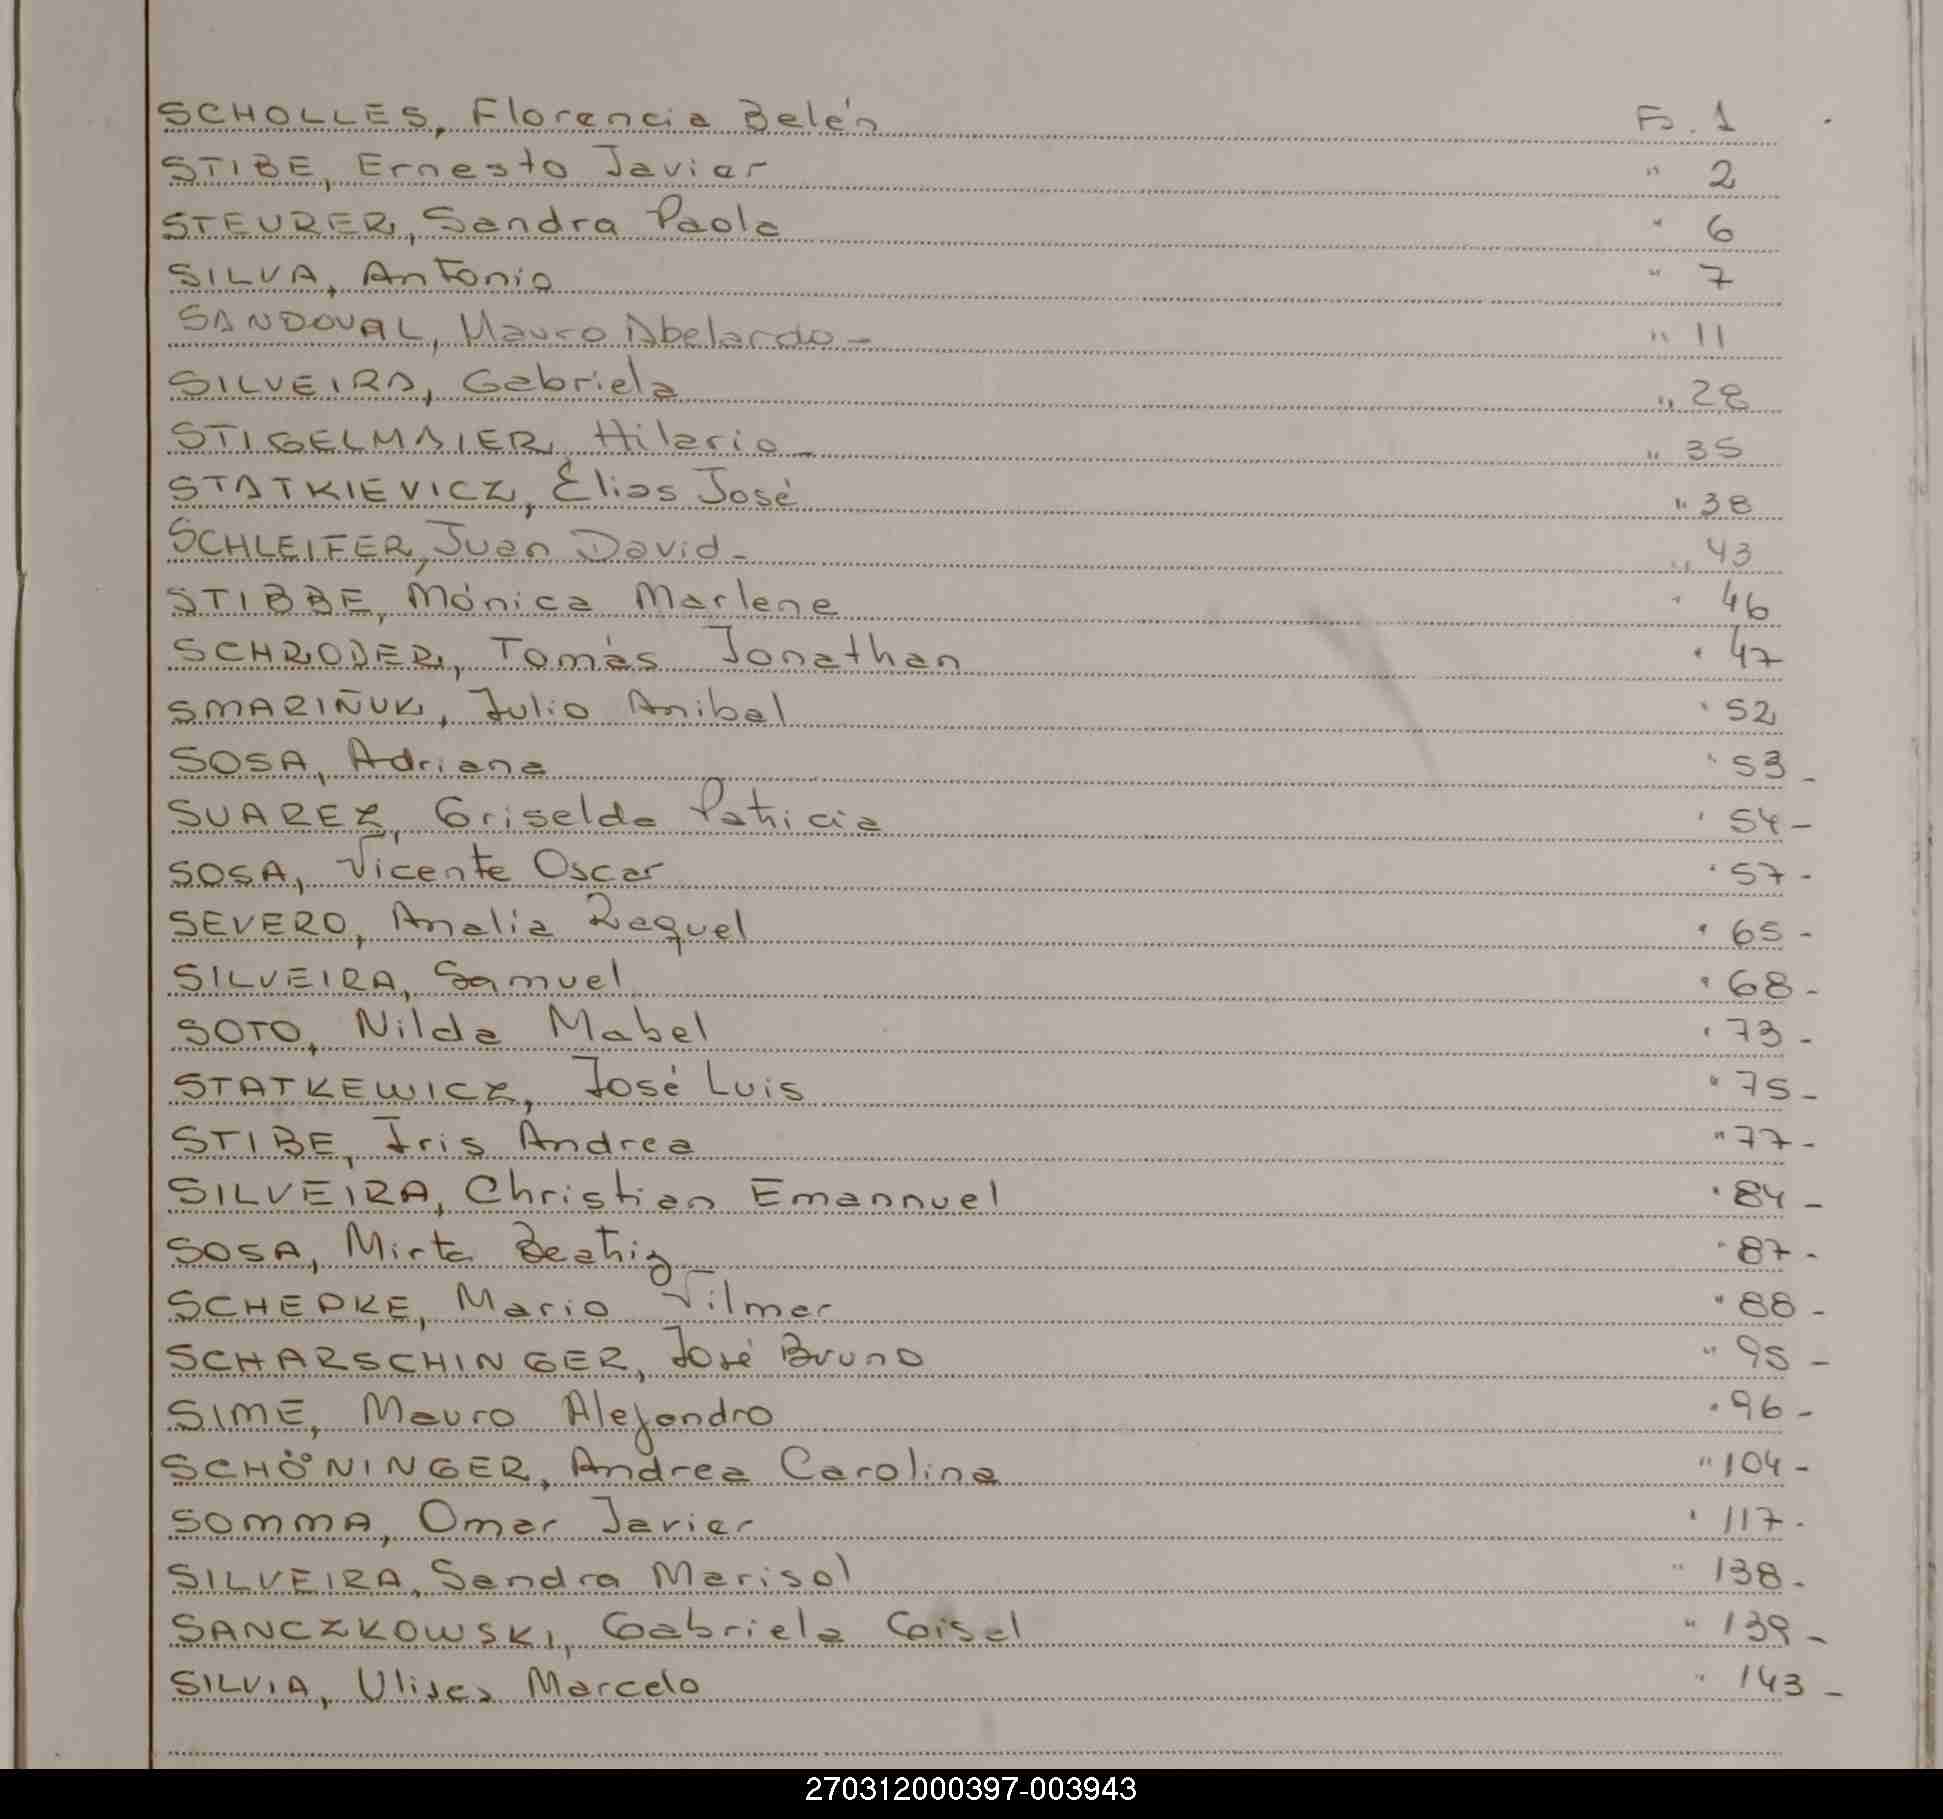 SCHOLLES, Florencia Belén Fo. 1
STIBE, Ernesto Javier " 2
STEURER, Sandra Paola " 6
SILVA, Antonio " 7
SANDOVAL, Mauro Abelardo - " 11
SILVEIRA, Gabriela " 28
STIGELMAIER, Hilario - " 35
STATKIEVICZ, Elias José " 38
SCHLEIFER, Juan David - " 43
STIBBE, Mónica Marlene " 46
SCHRODER, Tomás Jonathan " 47
SMARIÑUK, Julio Anibal " 52
SOSA, Adriana " 53 -
SUAREZ, Griselda Patricia " 54 -
SOSA, Vicente Oscar " 57 -
SEVERO, Analia Raquel " 65 -
SILVEIRA, Samuel " 68 -
SOTO, Nilda Mabel " 73 -
STATKEWICZ, José Luis " 75 -
STIBE, Iris Andrea " 77 -
SILVEIRA, Christian Emannuel " 84 -
SOSA, Mirta Beatriz " 87 -
SCHEDKE, Mario Vilmar " 88 -
SCHARSCHINGER, José Bruno " 95 -
SIME, Mauro Alejandro " 96 -
SCHÖNINGER, Andrea Carolina " 104 -
SOMMA, Omar Javier " 117 -
SILVEIRA, Sandra Marisol " 138 -
SANCZKOWSKI, Gabriela Gisel " 139 -
SILVIA, Ulises Marcelo " 143 -
270312000397-003943